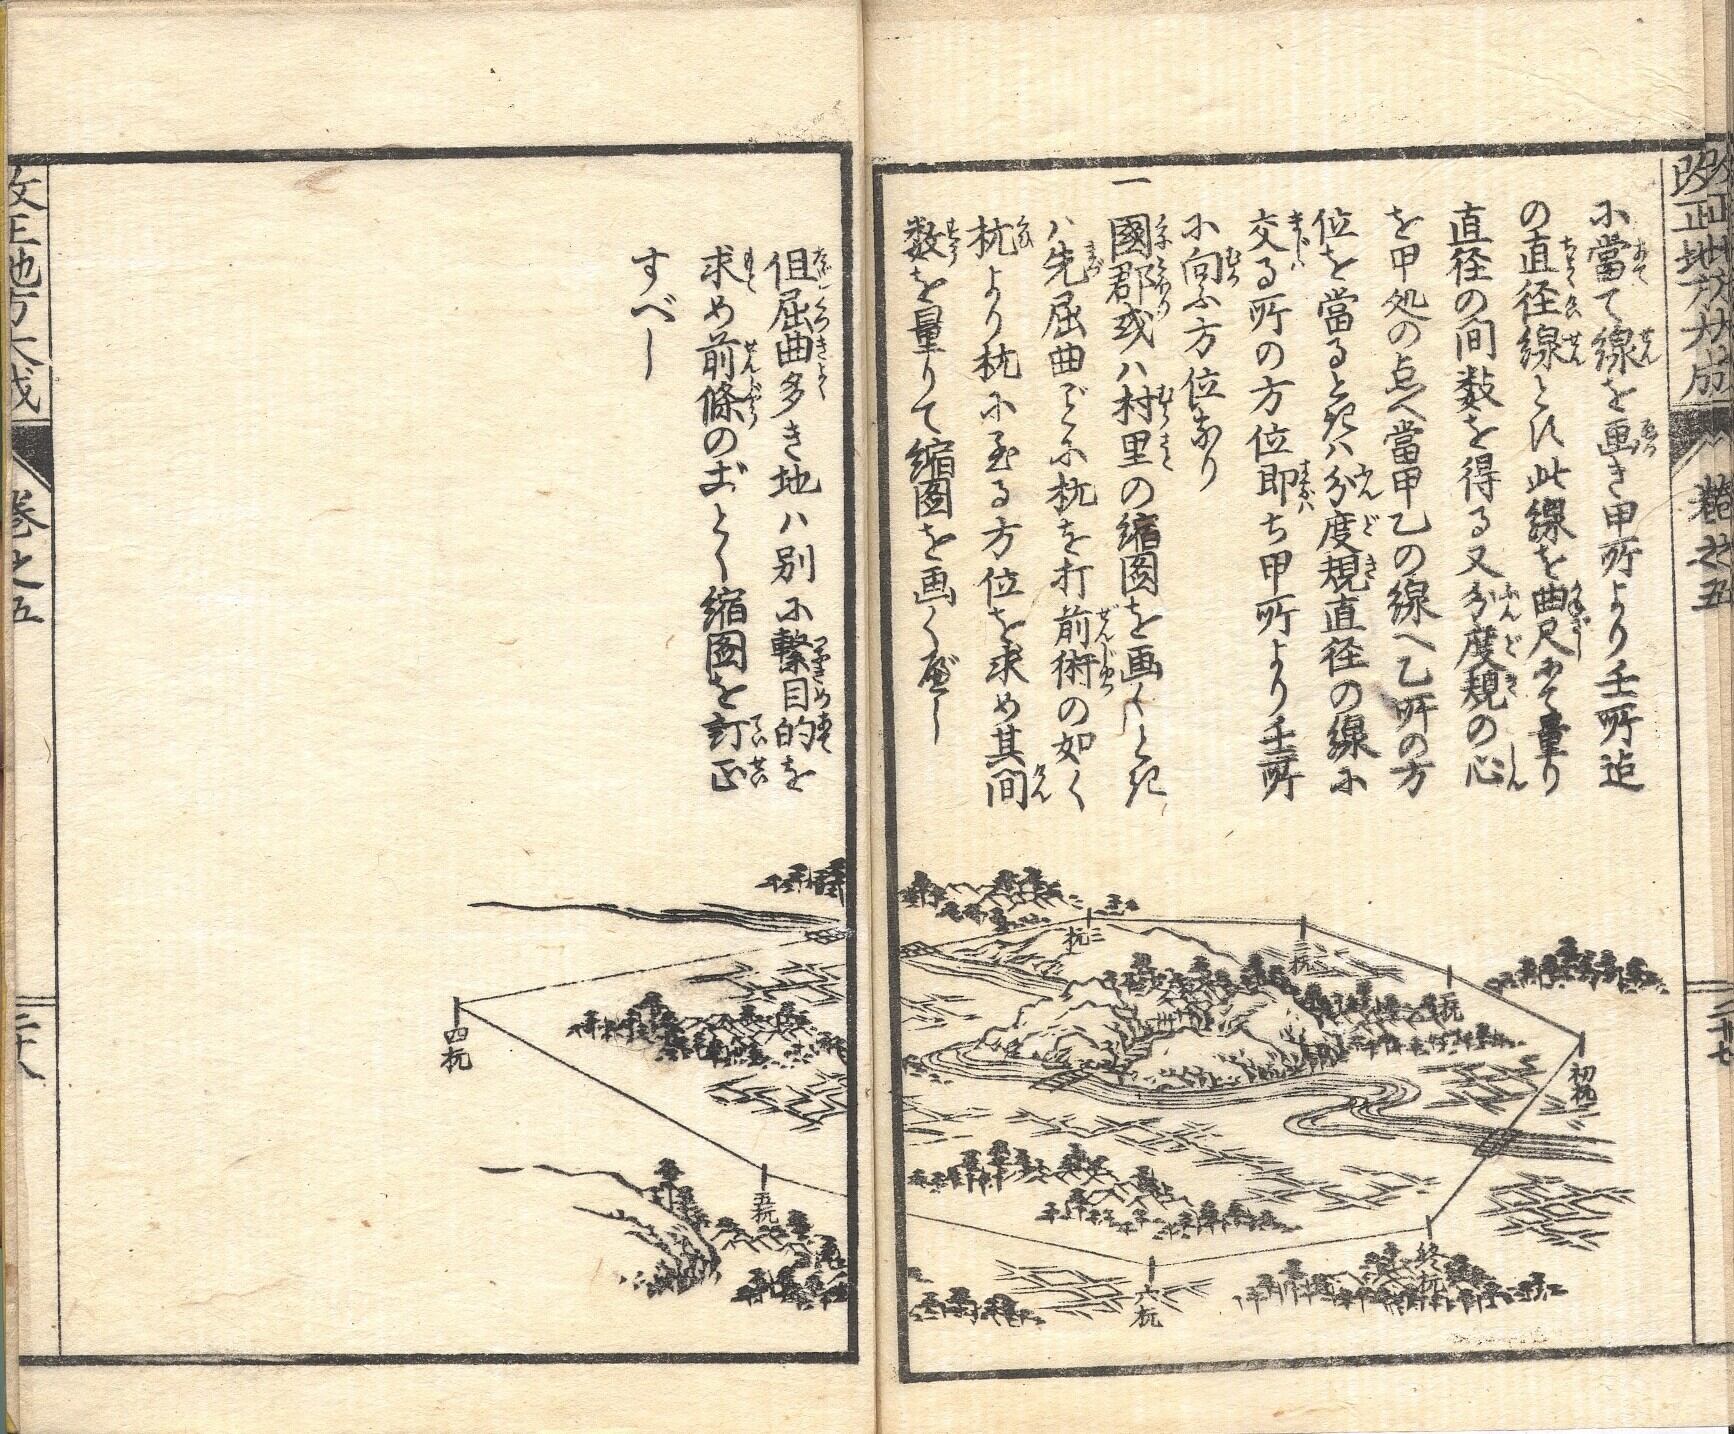 改正地方大成
巻之五
二十七
に當て線を画き甲所より壬所迄
の直径線とす此線を曲尺にて量り
直径の间数を得る又分度規の心
を甲処の点へ當甲乙の線へ乙所の方
位を當るときハ分度規直径の線に
交る所の方位即ち甲所より壬所
に向ふ方位なり
一國郡或ハ村里の縮図を画くとき
ハ先屈曲ごとに杭を打前術の如く
杭より杭に至る方位を求め其间
数を量りて縮図を画くべし
三杭
二杭
初杭
終杭
六杭
但屈曲多き地ハ别に繋目的を
求め前條のごとく縮図を訂正
すべし
四杭
五杭
改正地方大成
巻之五
二十八